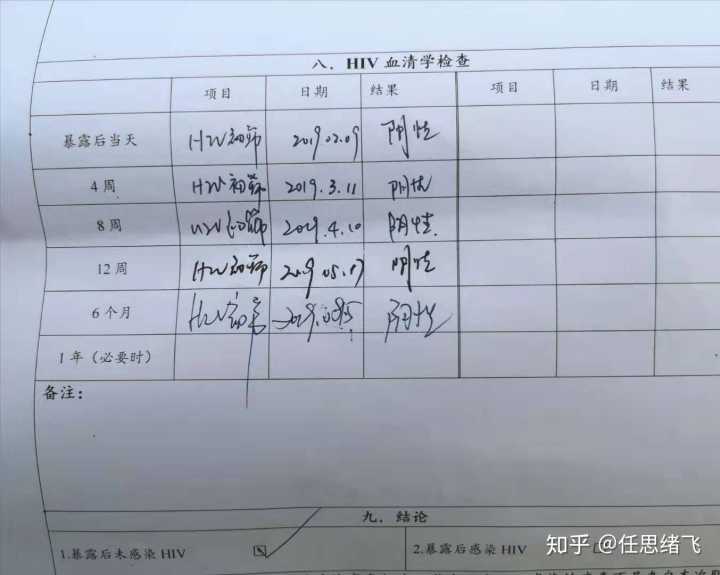 八．HIV 血清学检查
项目 日期 结果 项目 日期 结果
暴露后当天 HIV初筛 2019.02.09 阴性
4周 HIV初筛 2019.3.11 阴性
8周 HIV初筛 2019.4.10 阴性
12周 HIV初筛 2019.05.17 阴性
6个月 HIV初筛 阴性
1年（必要时）
备注：
九．结论
1.暴露后未感染 HIV ☑ 2.暴露后感染 HIV □
知乎 @任思绪飞